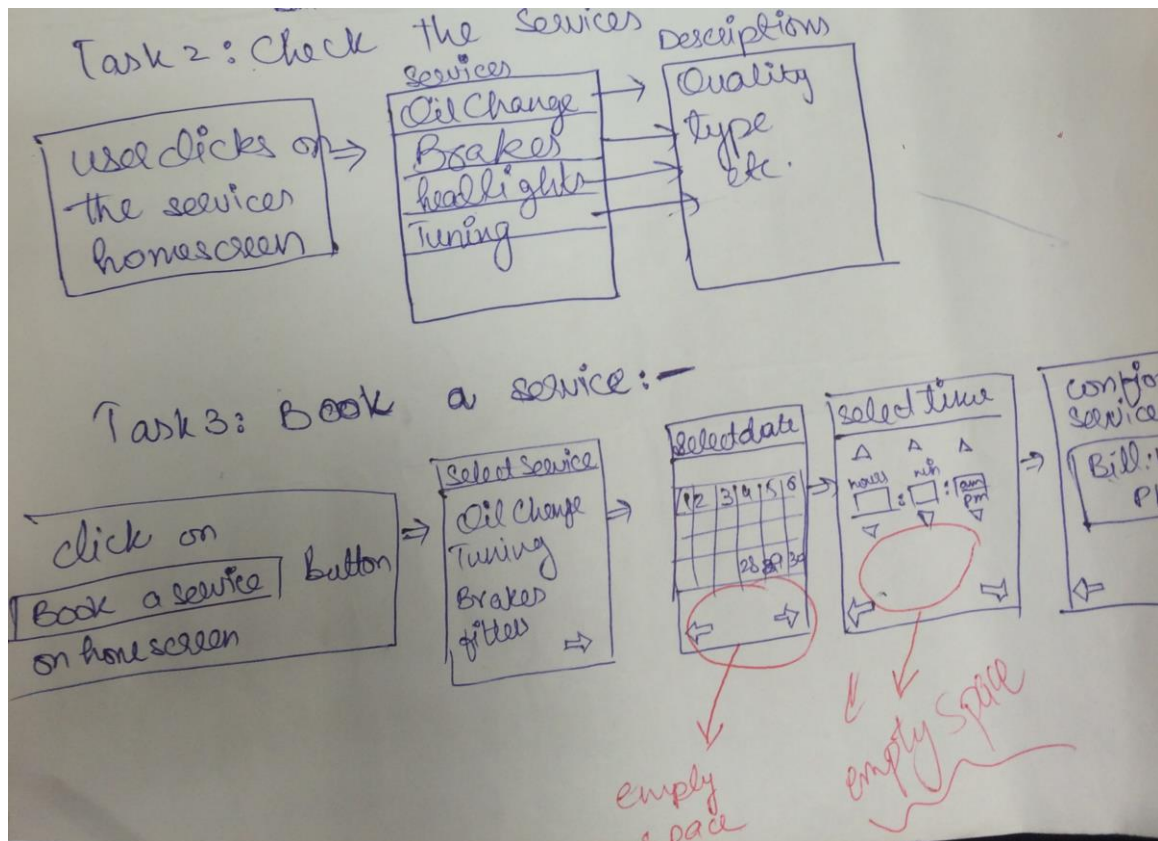 Task 2: Check the Services
user clicks on
the services
homescreen
Services
Oil Change
Brakes
headlights
Tuning
Descriptions
Quality
type
etc.
Task 3: Book a service:-
click on
Book a service Button
on homescreen
Select Service
Oil Change
Tuning
Brakes
Select date
1 2 3 4 5 6
28 29 30
select time
hours : min : am
pm
service
Bill:
empty
space
empty space